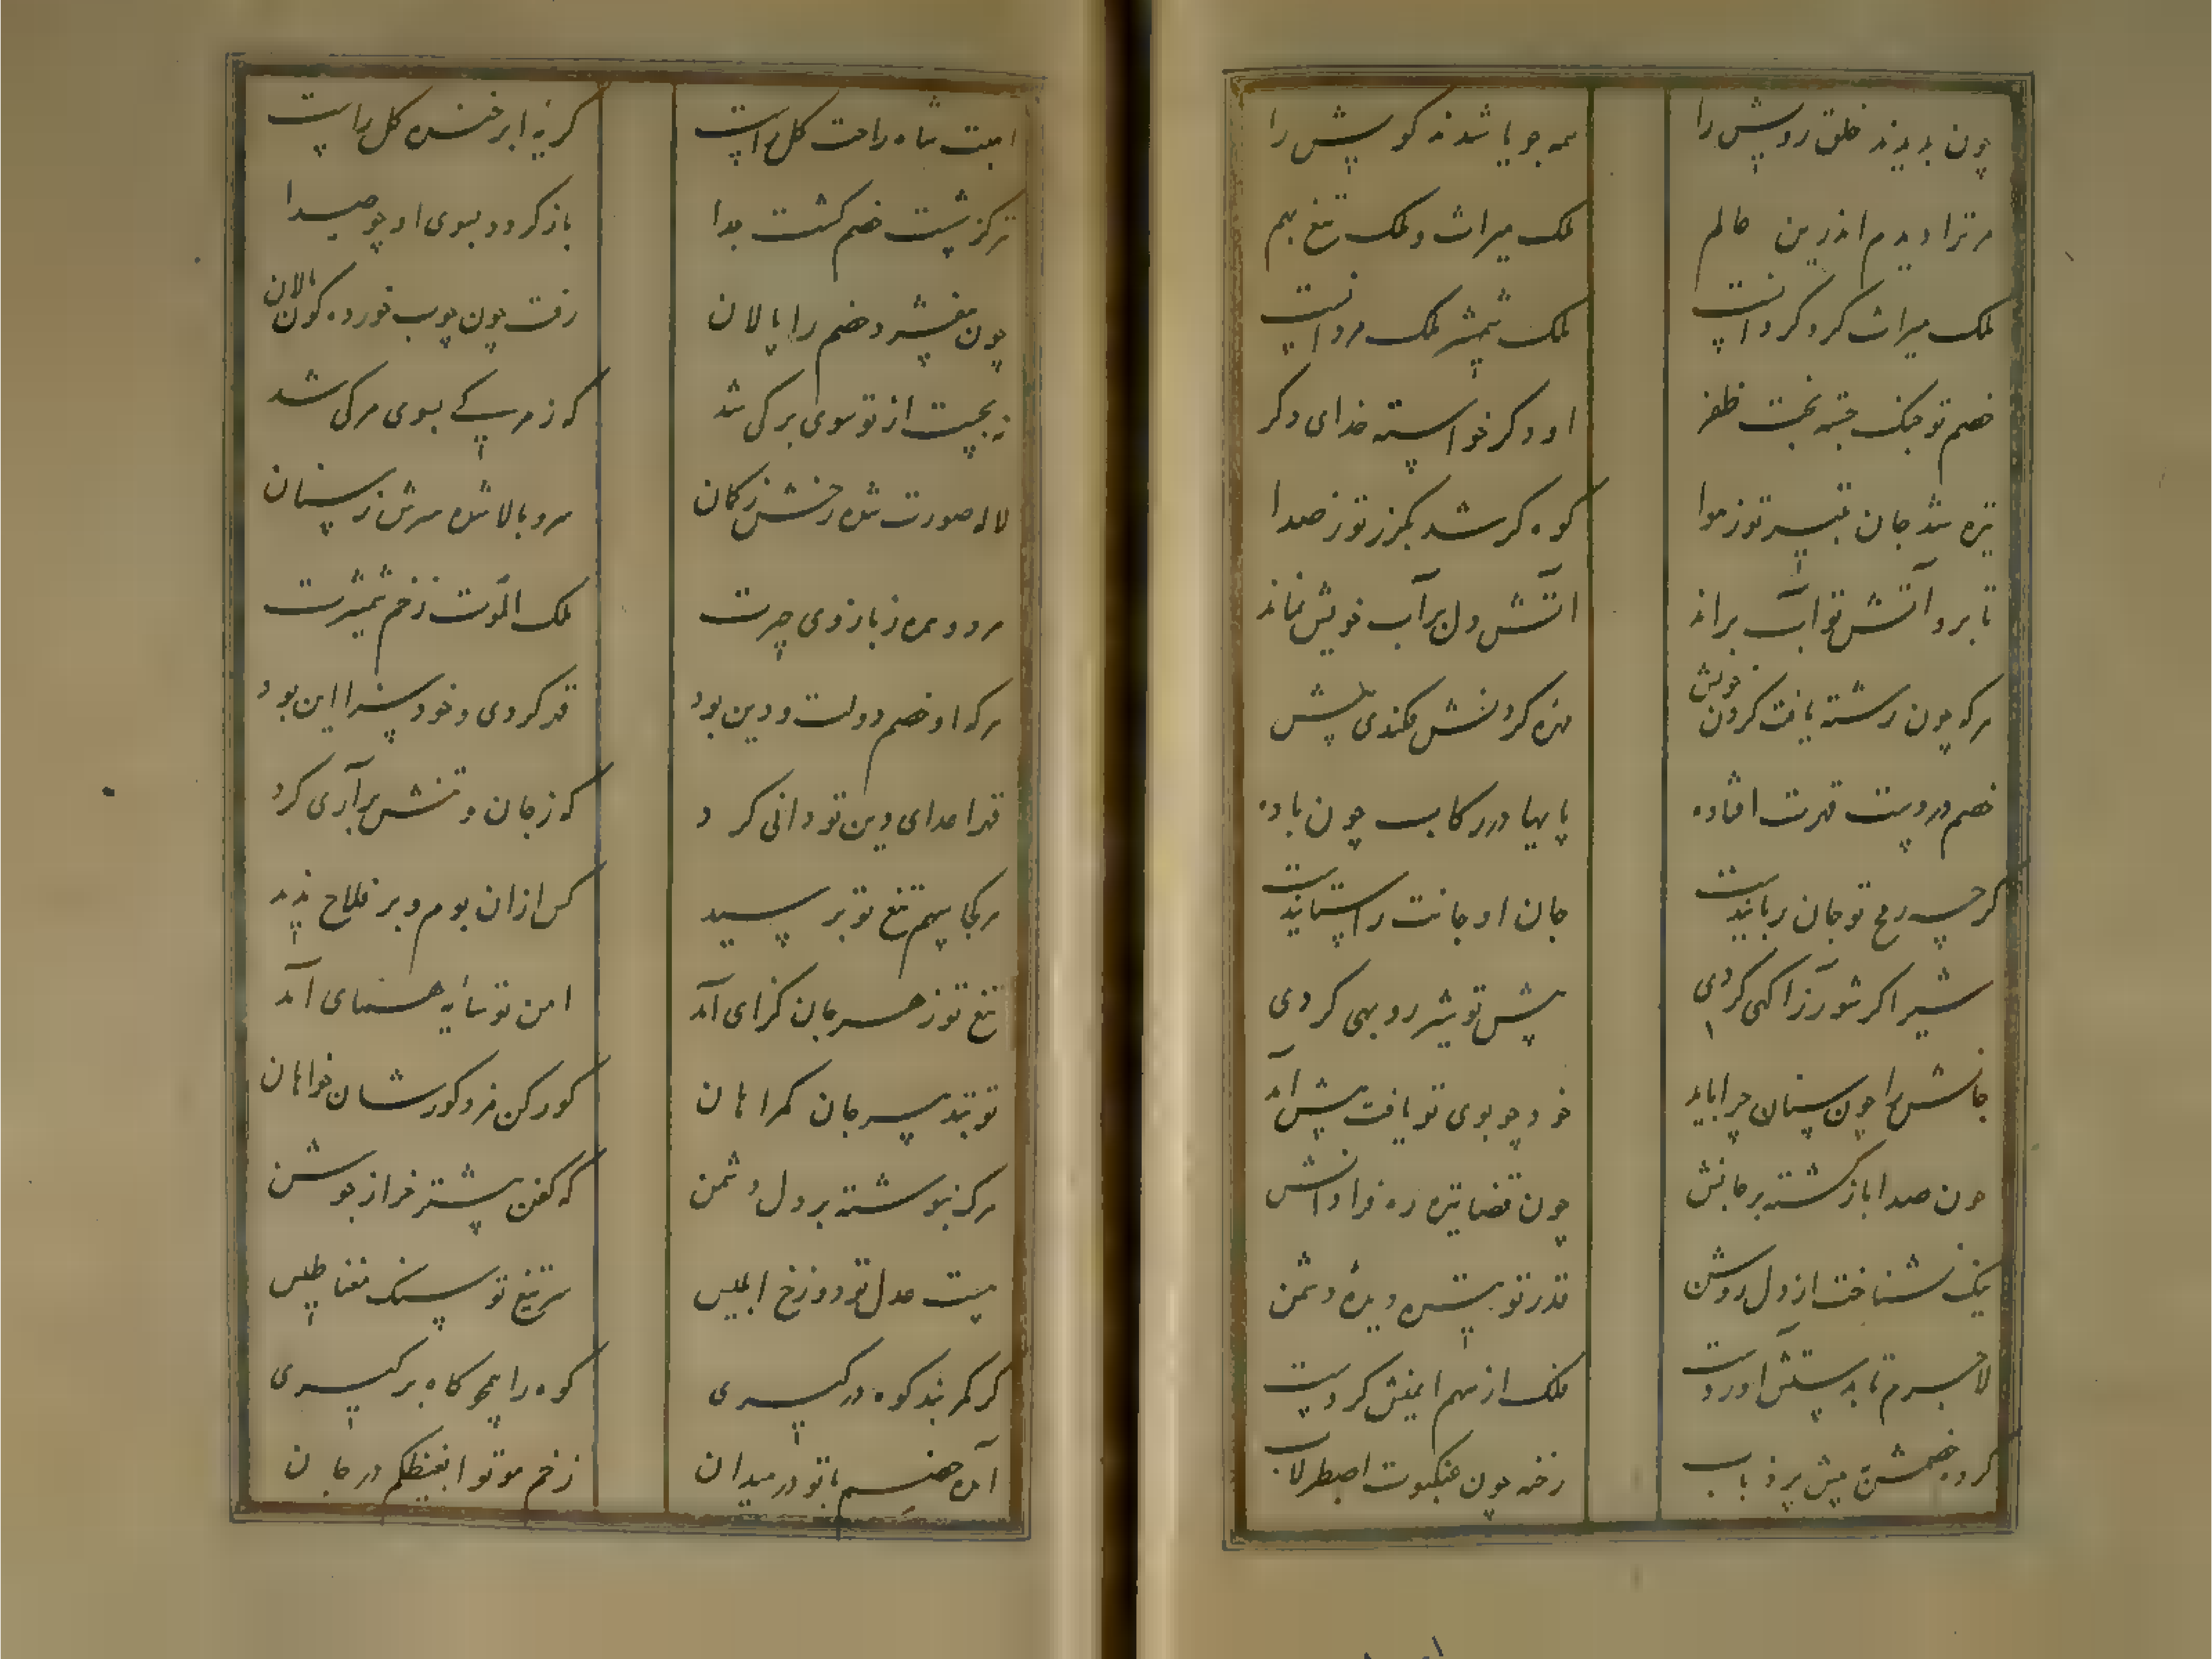 چون بدیدند خلق رویش را همه جویا شدند کویش را
مر ترا دیدم اندرین عالم ملک میراث و ملک تیغ بهم
ملک میراث کرد کرد است ملک شمشیر ملک مرد است
خصم تو جنک جسته بخت ظفر او دکر خواسته خدای دکر
تیره شد جان تیر تو ز هوا کوه کر شد بکرز تو ز صدا
تا برو آتش تو آب براند آتش دل بر آب خویش نماند
هرکه چون رشته یافت کردن خویش مهره کردنش فکندی پیش
خصم در دست قهرت افتاده پایها در رکاب چون باده
کرچه رمح تو جان رباینده است جان او جانت را ستاینده است
شیر اکر شور رزاکهی کردی پیش تو شیر روبهی کردی
جانش را چون سنان چرا باید خود چو بوی تو یافت پیش آید
چون صدا بازکشته بر جانش چون قضا تیره ره فرا دانش
نیک نشناخت از دل روشن قدر تو تیره دیده دشمن
لاجرم تا بدستش آوردست فلک از سهم ایمنش کردست
کرده خصمش تن پیش پر ذباب رخنه چون عنکبوت اصطرلاب
هیبت شاه راحت کل است کریه ابر خنده کل راست
تیر کز شست خصم کشت جدا باز کردد بسوی او چو صدا
چون بیفشرد خصم را پالان رفت چون چوب خورده کون نالان
نه بجست از تو سوی برکی شد که ز مرکی بسوی مرکی شد
لاله صورت شده رخش ز کمان سرو بالا شده سرش ز سنان
مرد و مرده ز بازوی چیرت ملک الموت زخم شمشیرت
هرکه او خصم دولت و دین بود قهر کردی و خود سزا این بود
قهر اعدای دین تو دانی کرد که ز جان و تنش برآری کرد
هرکجا سهم تیغ تو برسید کس ازان بوم و بر فلاح ندید
تیغ تو زحر جان کزای آمد امن تو سایه همای آمد
تو بتدبیر جان کمراهان کورکن مرد کورشان خواهان
مرک بنوشته بر دل دشمن که کفن پیشتر خر از جوشن
هست عدل تو دوزخ ابلیس سر تیغ تو سنک مغناطیس
کر کمربند کوه درکیری کوه را همچو کاه برکیری
آمده خصم با تو در میدان زخم موتوا بغیظکم در جان